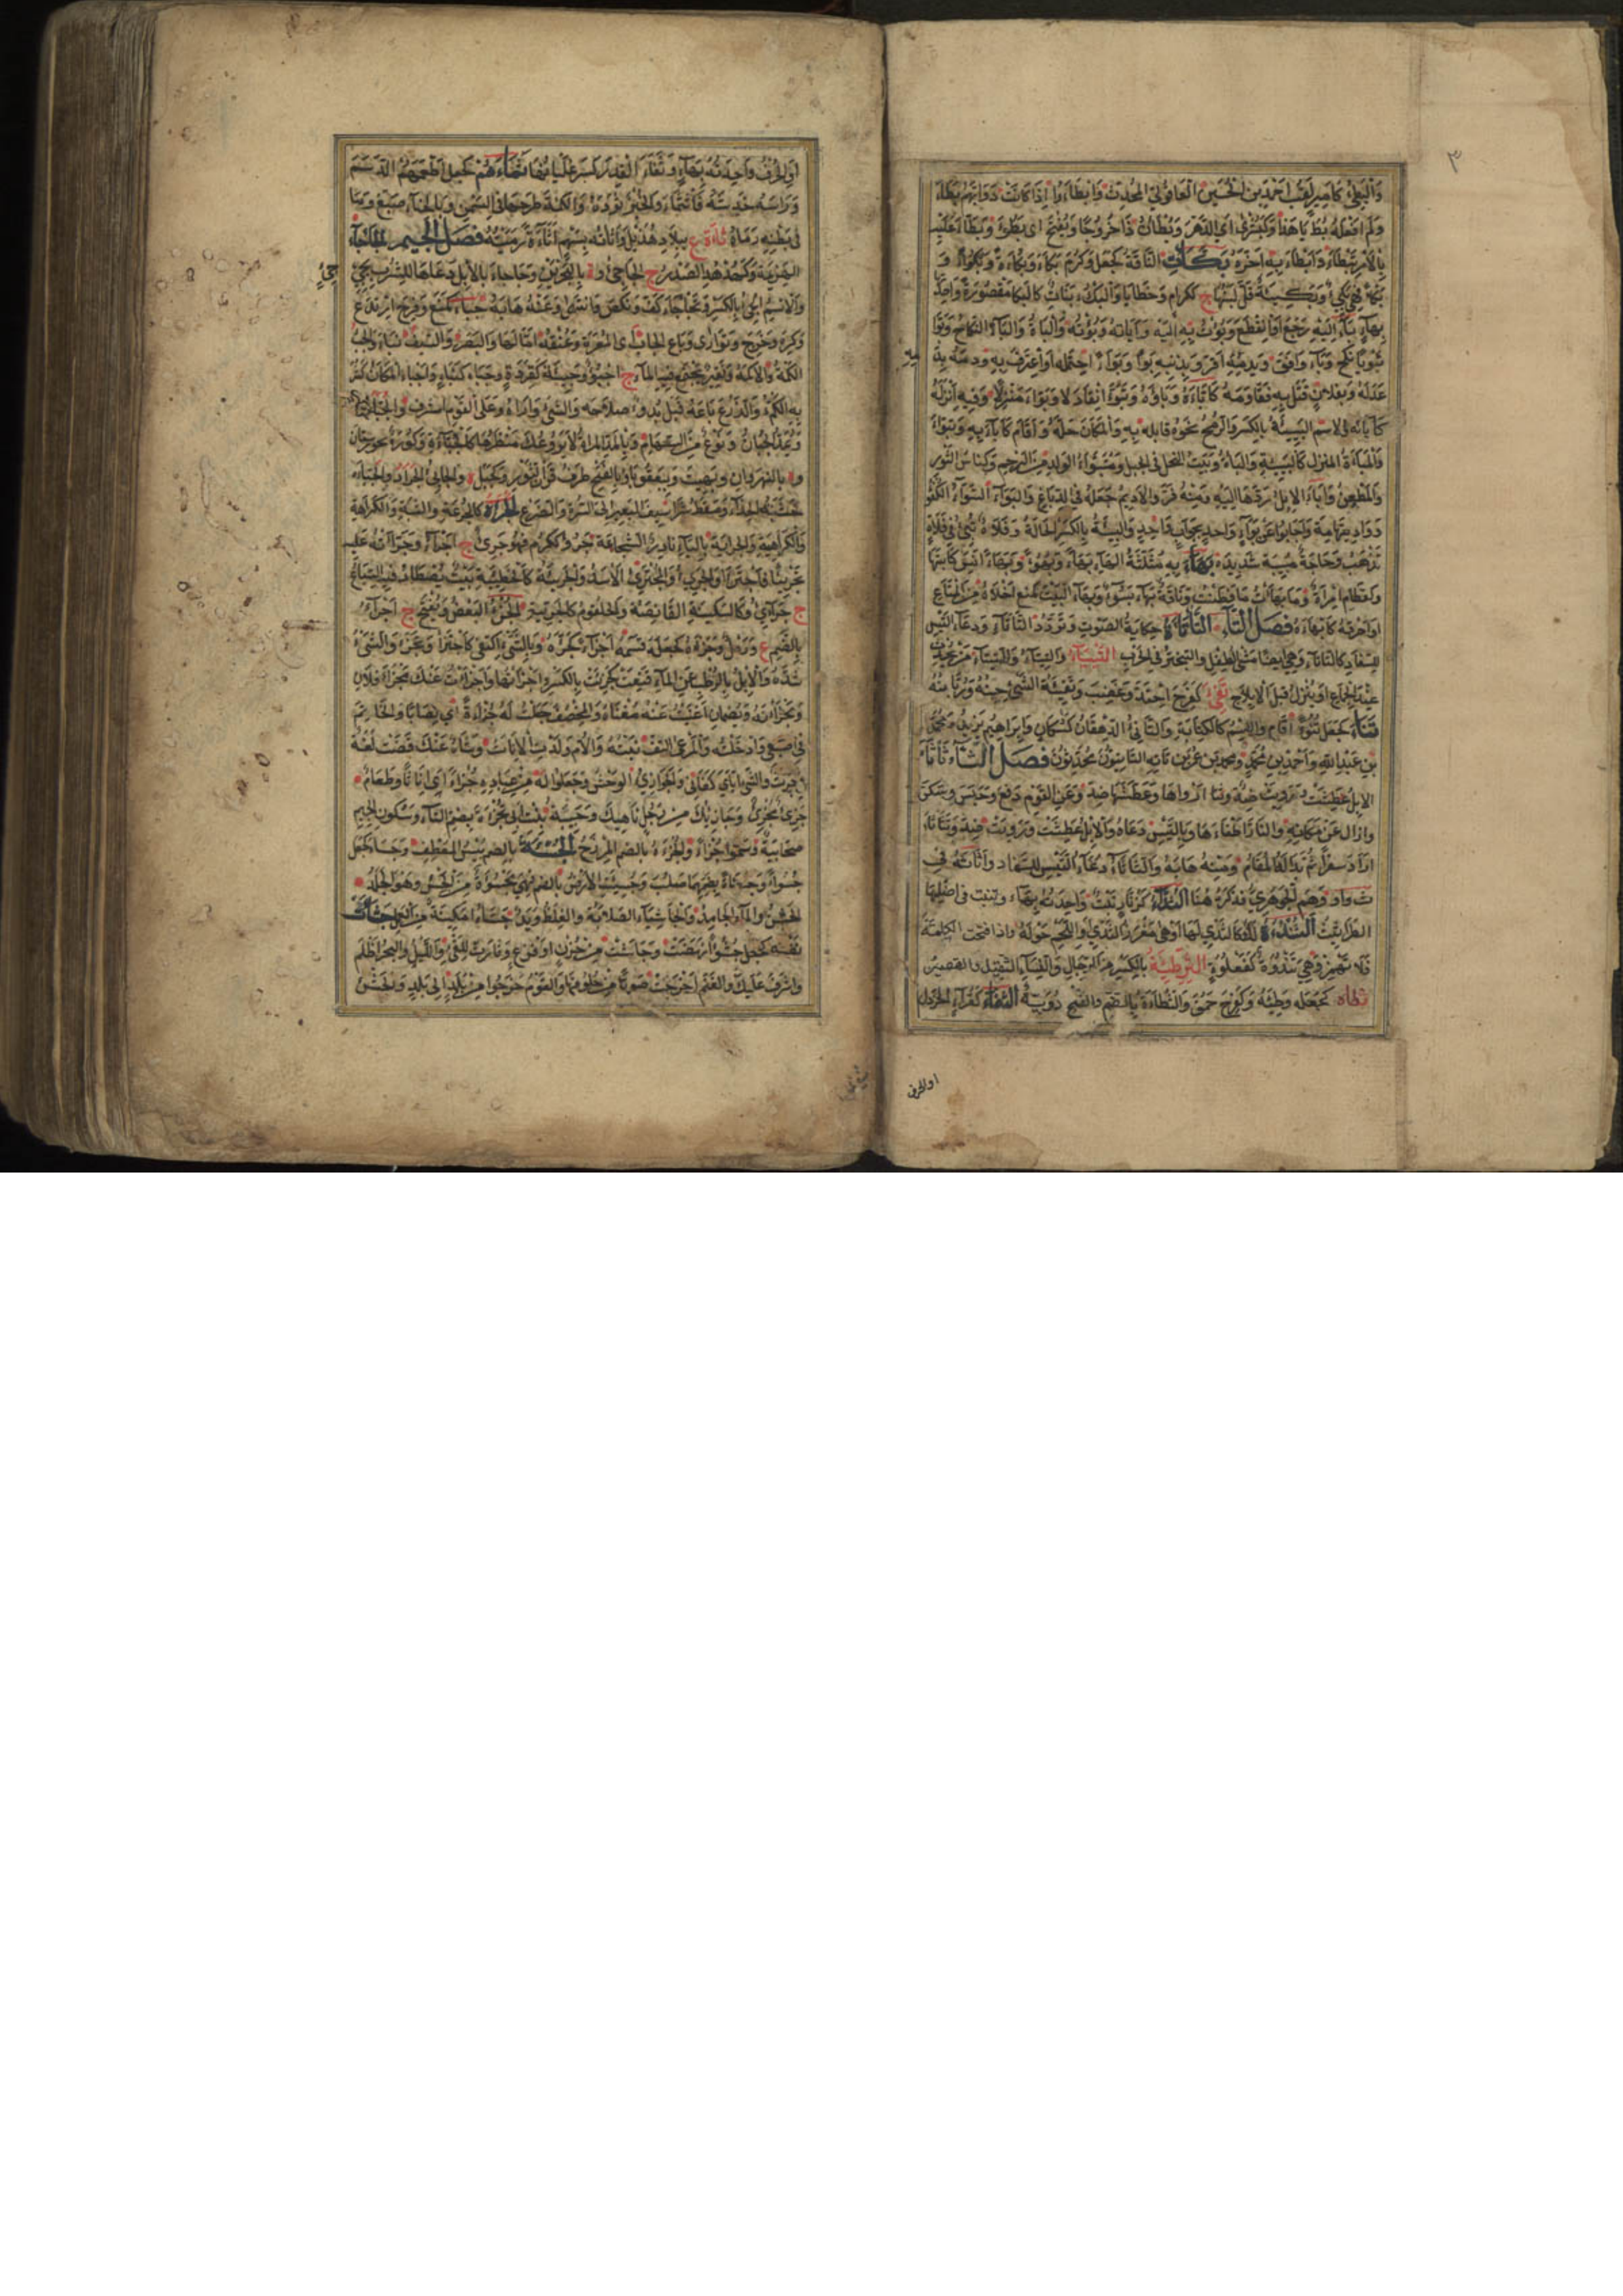 ٣
وَالْبَطِيءُ كَأَمِيرٍ لَقَبُ أَحْمَدَ بنِ الْحُسَيْنِ العَاقُولِيِّ المُحَدِّثِ وَأَبْطَاءُوا إِذَا كَانَتْ دَوَابُّهُمْ بِطَاءً
وَلَمْ أَفْعَلْهُ بُطْأَ يَا هَذَا وَكَبُشْرَى أي الدَّهْرَ وَبُطْآنَ ذَا خُرُوجًا وَيُفْتَحُ أي بَطُؤَ وَبَطَّأَ عَلَيْهِ
بِالأَمْرِ تَبْطِيئًا وَأَبْطَأَ بِهِ أَخَّرَهُ بَكَأَتِ النَّاقَةُ كَجَعَلَ وَكَرُمَ بَكَاءً وَبَكَاءَةً وَبُكُوءًا وَ
فَهِيَ بَكِيءٌ وَبَكِيئَةٌ قَلَّ لَبَنُهَا ج كَكِرَامٍ وَخَطَايَا وَالبَكْءُ نَبَاتٌ كَالبَكَا مَقْصُورَةً وَاحِدَتُ
بِهَاءٍ بَاءَ إِلَيْهِ رَجَعَ أَوِ انْقَطَعَ وَبُؤْتُ بِهِ إِلَيْهِ وَأَبَأْتُهُ وَبُؤْتُهُ وَالبَاءَةُ وَالبَاءُ النِّكَاحُ وَبَوَّأَ
تَبْوِيئًا نَكَحَ وَبَاءَ وَافَقَ وَبِدَمِهِ أَقَرَّ وَبِذَنْبِهِ بَوْءًا وَبَوَاءً احْتَمَلَهُ أَوِ اعْتَرَفَ بِهِ وَدَمُهُ بِدَمِ
عَدَلَهُ وَبِفُلَانٍ قُتِلَ بِهِ فَقَاوَمَهُ كَأَبَاءَهُ وَبَاوَأَهُ وَتَبَاوَآ تَعَادَلَا وَبَوَّأَهُ مَنْزِلًا وَفِيهِ أَنْزَلَهُ
كَأَبَاءَهُ وَالاِسْمُ البِيئَةُ بِالكَسْرِ وَالرُّمْحَ نَحْوَهُ قَابَلَهُ بِهِ وَالمَكَانَ حَلَّهُ وَأَقَامَ كَأَبَاءَ بِهِ وَتَبَوَّأَ
وَالمَبَاءَةُ المَنْزِلُ كَالبِيئَةِ وَالبَاءَةِ وَبَيْتُ النَّحْلِ فِي الجَبَلِ وَمُتَبَوَّأُ الوَلَدِ مِنَ الرَّحِمِ وَكِنَاسُ الثَّوْرِ
وَالمَعْطِنُ وَأَبَاءَ الإِبِلَ رَدَّهَا إِلَيْهِ وَمِنْهُ فَرَّ وَالأَدِيمَ جَعَلَهُ فِي الدِّبَاغِ وَالبَوَاءُ السَّوَاءُ الكُفْؤُ
وَوَادٍ بِتِهَامَةَ وَأَجَابُوا عَنْ بَوَاءٍ وَاحِدٍ بِجَوَابٍ وَاحِدٍ وَالبِيئَةُ بِالكَسْرِ الحَالَةُ وَفَلَاةٌ تُبِيءُ فِي فَلَاةٍ
تَذْهَبُ وَحَاجَةٌ مُبِيئَةٌ شَدِيدَةٌ بَهَأَ بِهِ مُثَلَّثَةَ الهَاءِ بَهْأً وَبُهُوءًا وَبَهَاءً أَنِسَ كَابْتَهَأَ
وَكَقَطَامِ امْرَأَةٌ وَمَا بَهَأْتُ مَا فَطِنْتُ وَنَاقَةٌ بَهَاءٌ بَسُوءٌ وَبَهَأَ البَيْتَ كَمَنَعَ أَخْلَاهُ مِنَ المَتَاعِ
أَوْ خَرَقَهُ كَأَبْهَأَهُ فَصْلُ التَّاءِ التَّأْتَأَةُ حِكَايَةُ الصَّوْتِ وَتَرَدُّدُ التَّأْتَاءِ وَدُعَاءُ التَّيْسِ
لِلسِّفَادِ كَالتَّأْتَاءِ وَهِيَ أَيْضًا مَشْيُ الطِّفْلِ وَالتَّبَخْتُرُ فِي الحَرْبِ التِّيتَاءُ وَالتِّئْتَاءُ مَنْ يُحْدِثُ
عِنْدَ الجِمَاعِ أَوْ يُنْزِلُ قَبْلَ الإِيلَاجِ تَفِئَ كَفَرِحَ احْتَدَّ وَغَضِبَ وَتَفِيئَةُ الشَّيْءِ حِينُهُ وَزَمَانُهُ
تَنَأَ كَجَعَلَ تُنُوءًا أَقَامَ وَالاِسْمُ كَالكِتَابَةِ وَالتَّانِئُ الدِّهْقَانُ كَسُكَّانٍ وَإِبْرَاهِيمُ بْنُ يَزِيدَ وَمُحَمَّدُ
بْنُ عَبْدِ اللهِ وَأَحْمَدُ بْنُ مُحَمَّدٍ وَمُحَمَّدُ بْنُ عُمَرَ بْنِ تَانَةَ التَّانِئُونَ مُحَدِّثُونَ فَصْلُ الثَّاءِ ثَأْثَأَ
الإِبِلَ عَطِشَتْ وَرَوِيَتْ ضِدٌّ وَثَأْثَأَ أَرْوَاهَا وَعَطَّشَهَا ضِدٌّ وَعَنِ القَوْمِ دَفَعَ وَحَبَسَ وَسَكَّنَ
وَأَزَالَ عَنْ مَكَانِهِ وَالنَّارَ أَطْفَأَهَا وَبِالتَّيْسِ دَعَاهُ وَالإِبِلُ عَطِشَتْ وَرَوِيَتْ ضِدٌّ وَتَثَأْثَأَ
أَرَادَ سَفَرًا ثُمَّ بَدَا لَهُ المُقَامُ وَمِنْهُ هَابَهُ وَالثَّأْثَاءُ دُعَاءُ التَّيْسِ لِلسِّفَادِ وَأَثَأْتُهُ فِي
ث و أ وَوَهِمَ الجَوْهَرِيُّ فَذَكَرَهُ هُنَا الثُّدَّاءُ كَزُنَّارٍ نَبْتٌ وَاحِدَتُهُ بِهَاءٍ وَيَنْبُتُ فِي أَصْلِهَا
الطَّرَاثِيثُ الثَّنْدُؤَةُ لَكَ كَالثَّدْيِ لَهَا أَوْ هِيَ مَغْرِزُ الثَّدْيِ أَوِ اللَّحْمُ حَوْلَهُ وَإِذَا فَتَحْتَ الكَلِمَةَ
فَلَا تَهْمِزْ وَهِيَ ثَنْدُوَةٌ كَفَعْلُوَةٍ الثِّرْطِئَةُ بِالكَسْرِ مِنَ الرِّجَالِ وَالنِّسَاءِ الثَّقِيلُ وَالقَصِيرُ
ثَطَأَهُ كَجَعَلَهُ وَطِئَهُ وَكَفَرِحَ حَمُقَ وَالثُّطْأَةُ بِالضَّمِّ وَالفَتْحِ دُوَيْبَّةٌ الثُّفَّاءُ كَقُرَّاءٍ الخَرْدَلُ
أو الحرف
أَوِ الحُرْفُ وَاحِدَتُهُ بِهَاءٍ وَثَفَأَ القِدْرَ كَسَرَ غَلَيَانَهَا ثَمَأَهُمْ كَجَعَلَ أَطْعَمَهُمُ الدَّسَمَ
وَرَأْسَهُ شَدَخَهُ فَانْثَمَأَ وَالخُبْزَ ثَرَدَهُ وَالكَمْأَةَ طَرَحَهَا فِي السَّمْنِ وَبِالحِنَّاءِ صَبَغَ وَمَا
فِي بَطْنِهِ رَمَاهُ ثَاءَةُ ع بِبِلَادِ هُذَيْلٍ وَأَثَأْتُهُ بِسَهْمٍ إِثَاءَةً رَمَيْتُهُ فَصْلُ الجِيمِ الجَأْجَاءُ
الهَزِيمَةُ وَكَهُدْهُدٍ الصَّدْرُ ج الجَآجِئُ وَة بِالبَحْرَيْنِ وَجَأْجَأَ بِالإِبِلِ دَعَاهَا لِلشُّرْبِ بِجِئْ
جِئْ
وَالاِسْمُ الجِيءُ بِالكَسْرِ وَتَجَأْجَأَ كَفَّ وَنَكَصَ وَانْتَهَى وَعَنْهُ هَابَهُ جَبَأَ كَمَنَعَ وَفَرِحَ ارْتَدَعَ
وَكَرِهَ وَخَرَجَ وَتَوَارَى وَبَاعَ الجَأْبَ أَيِ المَغْرَةَ وَعُنُقَهُ أَمَالَهَا وَالبَصَرُ وَالسَّيْفُ نَبَا وَالجَبْءُ
الكَمْأَةُ وَالأَكَمَةُ وَنَقِيرٌ يَجْتَمِعُ فِيهِ المَاءُ ج أَجْبُؤٌ وَجِبَأَةٌ كَقِرَدَةٍ وَجَبَأٌ كَنَبَإٍ وَأَجْبَأَ المَكَانُ كَثُرَ
بِهِ الكَمْأَةُ وَالزَّرْعَ بَاعَهُ قَبْلَ بُدُوِّ صَلَاحِهِ وَالشَّيْءَ وَارَاهُ وَعَلَى القَوْمِ أَشْرَفَ وَالجُبَّأُ
وَيُمَدُّ الجَبَانُ وَنَوْعٌ مِنَ السِّهَامِ وَبِالمَدِّ المَرْأَةُ لَا يَرُوعُكَ مَنْظَرُهَا كَالجُبَّاءَةِ وَكُورَةٌ بِخُوزِسْتَانَ
وَة بِالنَّهْرَوَانِ وَبِهِيتَ وَبِبَعْقُوبَا وَبِالفَتْحِ طَرَفُ قَرْنِ الثَّوْرِ وَكَجَبَلٍ ة وَالجَابِئُ الجَرَادُ وَالجَبْأَةُ
خَشَبَةُ الحَذَّاءِ وَمَقَطُّ شَرَاسِيفِ البَعِيرِ إِلَى السُّرَّةِ وَالضَّرْعِ الجُرْأَةُ كَالجُرْعَةِ وَالثُّبَةِ وَالكَرَاهَةِ
وَالكَرَاهِيَةِ وَالجَرَايَةُ بِاليَاءِ نَادِرٌ الشَّجَاعَةُ جَرُؤَ كَكَرُمَ فَهُوَ جَرِيءٌ ج أَجْرَاءُ وَجَرَّأْتُهُ عَلَيْهِ
تَجْرِيئًا فَاجْتَرَأَ وَالجَرِيءُ وَالمُجْتَرِئُ الأَسَدُ وَالجَرِيئَةُ كَالخَطِيئَةِ بَيْتٌ يُصْطَادُ فِيهِ السِّبَاعُ
ج جَرَائِيُ وَكَالسِّكِّينَةِ القَانِصَةُ وَالحُلْقُومُ كَالجِرِّيَةِ الجُزْءُ البَعْضُ وَيُفْتَحُ ج أَجْزَاءٌ
بِالضَّمِّ ع وَرَمْلٌ وَجَزَأَهُ كَجَعَلَهُ قَسَمَهُ أَجْزَاءً كَجَزَّأَهُ وَبِالشَّيْءِ اكْتَفَى كَاجْتَزَأَ وَتَجَزَّأَ وَالشَّيْءَ
شَدَّهُ وَالإِبِلُ بِالرُّطْبِ عَنِ المَاءِ قَنِعَتْ كَجَزِئَتْ بِالكَسْرِ وَأَجْزَأْتُهَا وَأَجْزَأْتُ عَنْكَ مُجْزَأَ فُلَانٍ
وَمُجْزَأَتَهُ وَيُضَمَّانِ أَغْنَيْتُ عَنْهُ مَغْنَاهُ وَالمِخْصَفَ جَعَلْتُ لَهُ جُزْأَةً أَيْ نِصَابًا وَالخَاتَمَ
فِي إِصْبَعِي أَدْخَلْتُهُ وَالمَرْعَى التَفَّ نَبْتُهُ وَالأُمُّ وَلَدَتِ الإِنَاثَ وَشَاةٌ عَنْكَ قَضَتْ لُغَةٌ
فِي جَزَتْ وَالشَّيْءُ إِيَّايَ كَفَانِي وَالجَوَازِئُ الوَحْشُ وَجَعَلُوا لَهُ مِنْ عِبَادِهِ جُزْءًا أَيْ إِنَاثًا وَطَعَامٌ
جَزِيءٌ مُجْزِئٌ وَجَازِئُكَ مِنْ رَجُلٍ نَاهِيكَ وَحَبِيبَةُ بِنْتُ أَبِي تُجْزَأَةَ بِضَمِّ التَّاءِ وَسُكُونِ الجِيمِ
صَحَابِيَّةٌ وَسَمَّوْا جَزْءًا وَالجُزْأَةُ بِالضَّمِّ المِرْزَحُ الجُسْأَةُ بِالضَّمِّ يُبْسُ المَعْطِفِ وَجَسَأَ كَجَعَلَ
جُسُوءًا وَجُسْأَةً بِضَمِّهِمَا صَلُبَ وَجُسِئَتِ الأَرْضُ بِالضَّمِّ فَهِيَ مَجْسُوءَةٌ مِنَ الجَسْءِ وَهُوَ الجَلَدُ
الخَشِنُ وَالمَاءُ الجَامِدُ وَالجَاسِيَاءُ الصَّلَابَةُ وَالغِلَظُ وَيَدٌ جَسْآءُ مُكْنِبَةٌ مِنَ العَمَلِ جَشَأَتْ
نَفْسُهُ كَجَعَلَ جُشُوءًا نَهَضَتْ وَجَاشَتْ مِنْ حُزْنٍ أَوْ فَزَعٍ وَثَارَتْ لِلقَيْءِ وَاللَّيْلُ وَالبَحْرُ أَظْلَمَ
وَأَشْرَفَ عَلَيْكَ وَالغَنَمُ أَخْرَجَتْ صَوْتًا مِنْ حُلُوقِهَا وَالقَوْمُ خَرَجُوا مِنْ بَلَدٍ إِلَى بَلَدٍ وَالجَشْءُ